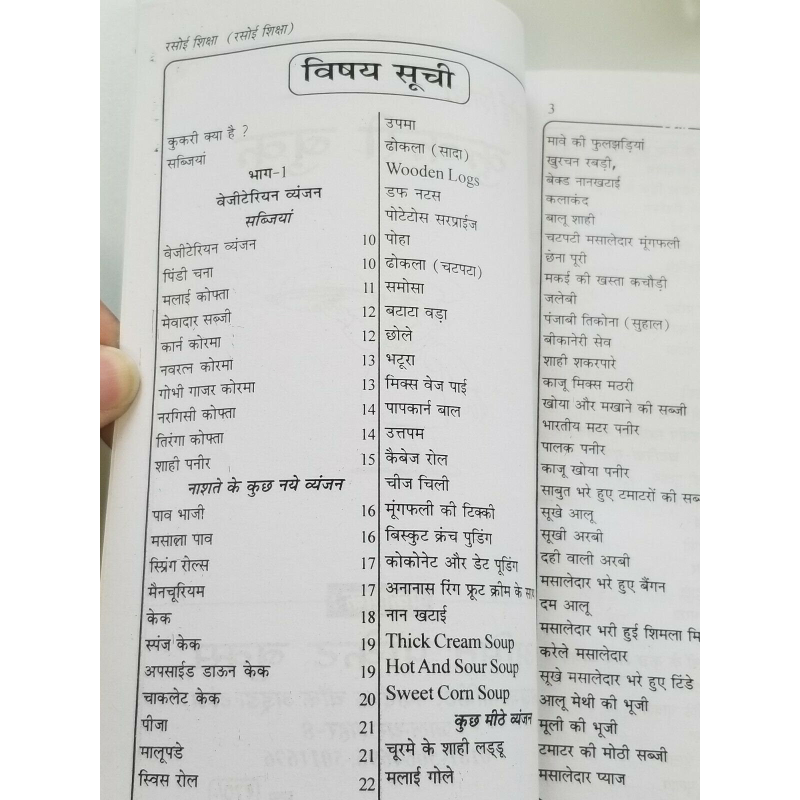 रसोई शिक्षा (रसोई शिक्षा)
विषय सूची
कुकरी क्या है ?
सब्जियां
भाग-1
वेजीटेरियन व्यंजन
सब्जियां
वेजीटेरियन व्यंजन 10
पिंडी चना 10
मलाई कोफ्ता 11
मेवादार सब्जी 12
कार्न कोरमा 12
नवरत्न कोरमा 13
गोभी गाजर कोरमा 13
नरगिसी कोफ्ता 14
तिरंगा कोफ्ता 14
शाही पनीर 15
नाशते के कुछ नये व्यंजन
पाव भाजी 16
मसाला पाव 16
स्प्रिंग रोल्स 17
मैनचूरियम 17
केक 18
स्पंज केक 19
अपसाईड डाऊन केक 19
चाकलेट केक 20
पीजा 21
मालूपडे 21
स्विस रोल 22
उपमा
ढोकला (सादा)
Wooden Logs
डफ नटस
पोटेटोस सरप्राईज
पोहा
ढोकला (चटपटा)
समोसा
बटाटा वड़ा
छोले
भटूरा
मिक्स वेज पाई
पापकार्न बाल
उत्तपम
कैबेज रोल
चीज चिली
मूंगफली की टिक्की
बिस्कुट क्रंच पुडिंग
कोकोनेट और डेट पूडिंग
अनानास रिंग फ्रूट क्रीम के
नान खटाई
Thick Cream Soup
Hot And Sour Soup
Sweet Corn Soup
कुछ मीठे व्यंजन
चूरमे के शाही लड्डू
मलाई गोले
3
मावे की फुलझड़ियां
खुरचन रबड़ी,
बेक्ड नानखटाई
कलाकंद
बालू शाही
चटपटी मसालेदार मूंगफली
छेना पूरी
मकई की खस्ता कचौड़ी
जलेबी
पंजाबी तिकोना (सुहाल)
बीकानेरी सेव
शाही शकरपारे
काजू मिक्स मठरी
खोया और मखाने की सब्जी
भारतीय मटर पनीर
पालक पनीर
काजू खोया पनीर
साबुत भरे हुए टमाटरों की
सूखे आलू
सूखी अरबी
दही वाली अरबी
मसालेदार भरे हुए बैंगन
दम आलू
मसालेदार भरी हुई शिमला
करेले मसालेदार
सूखे मसालेदार भरे हुए टिंडे
आलू मेथी की भूजी
मूली की भूजी
टमाटर की मोठी सब्जी
मसालेदार प्याज